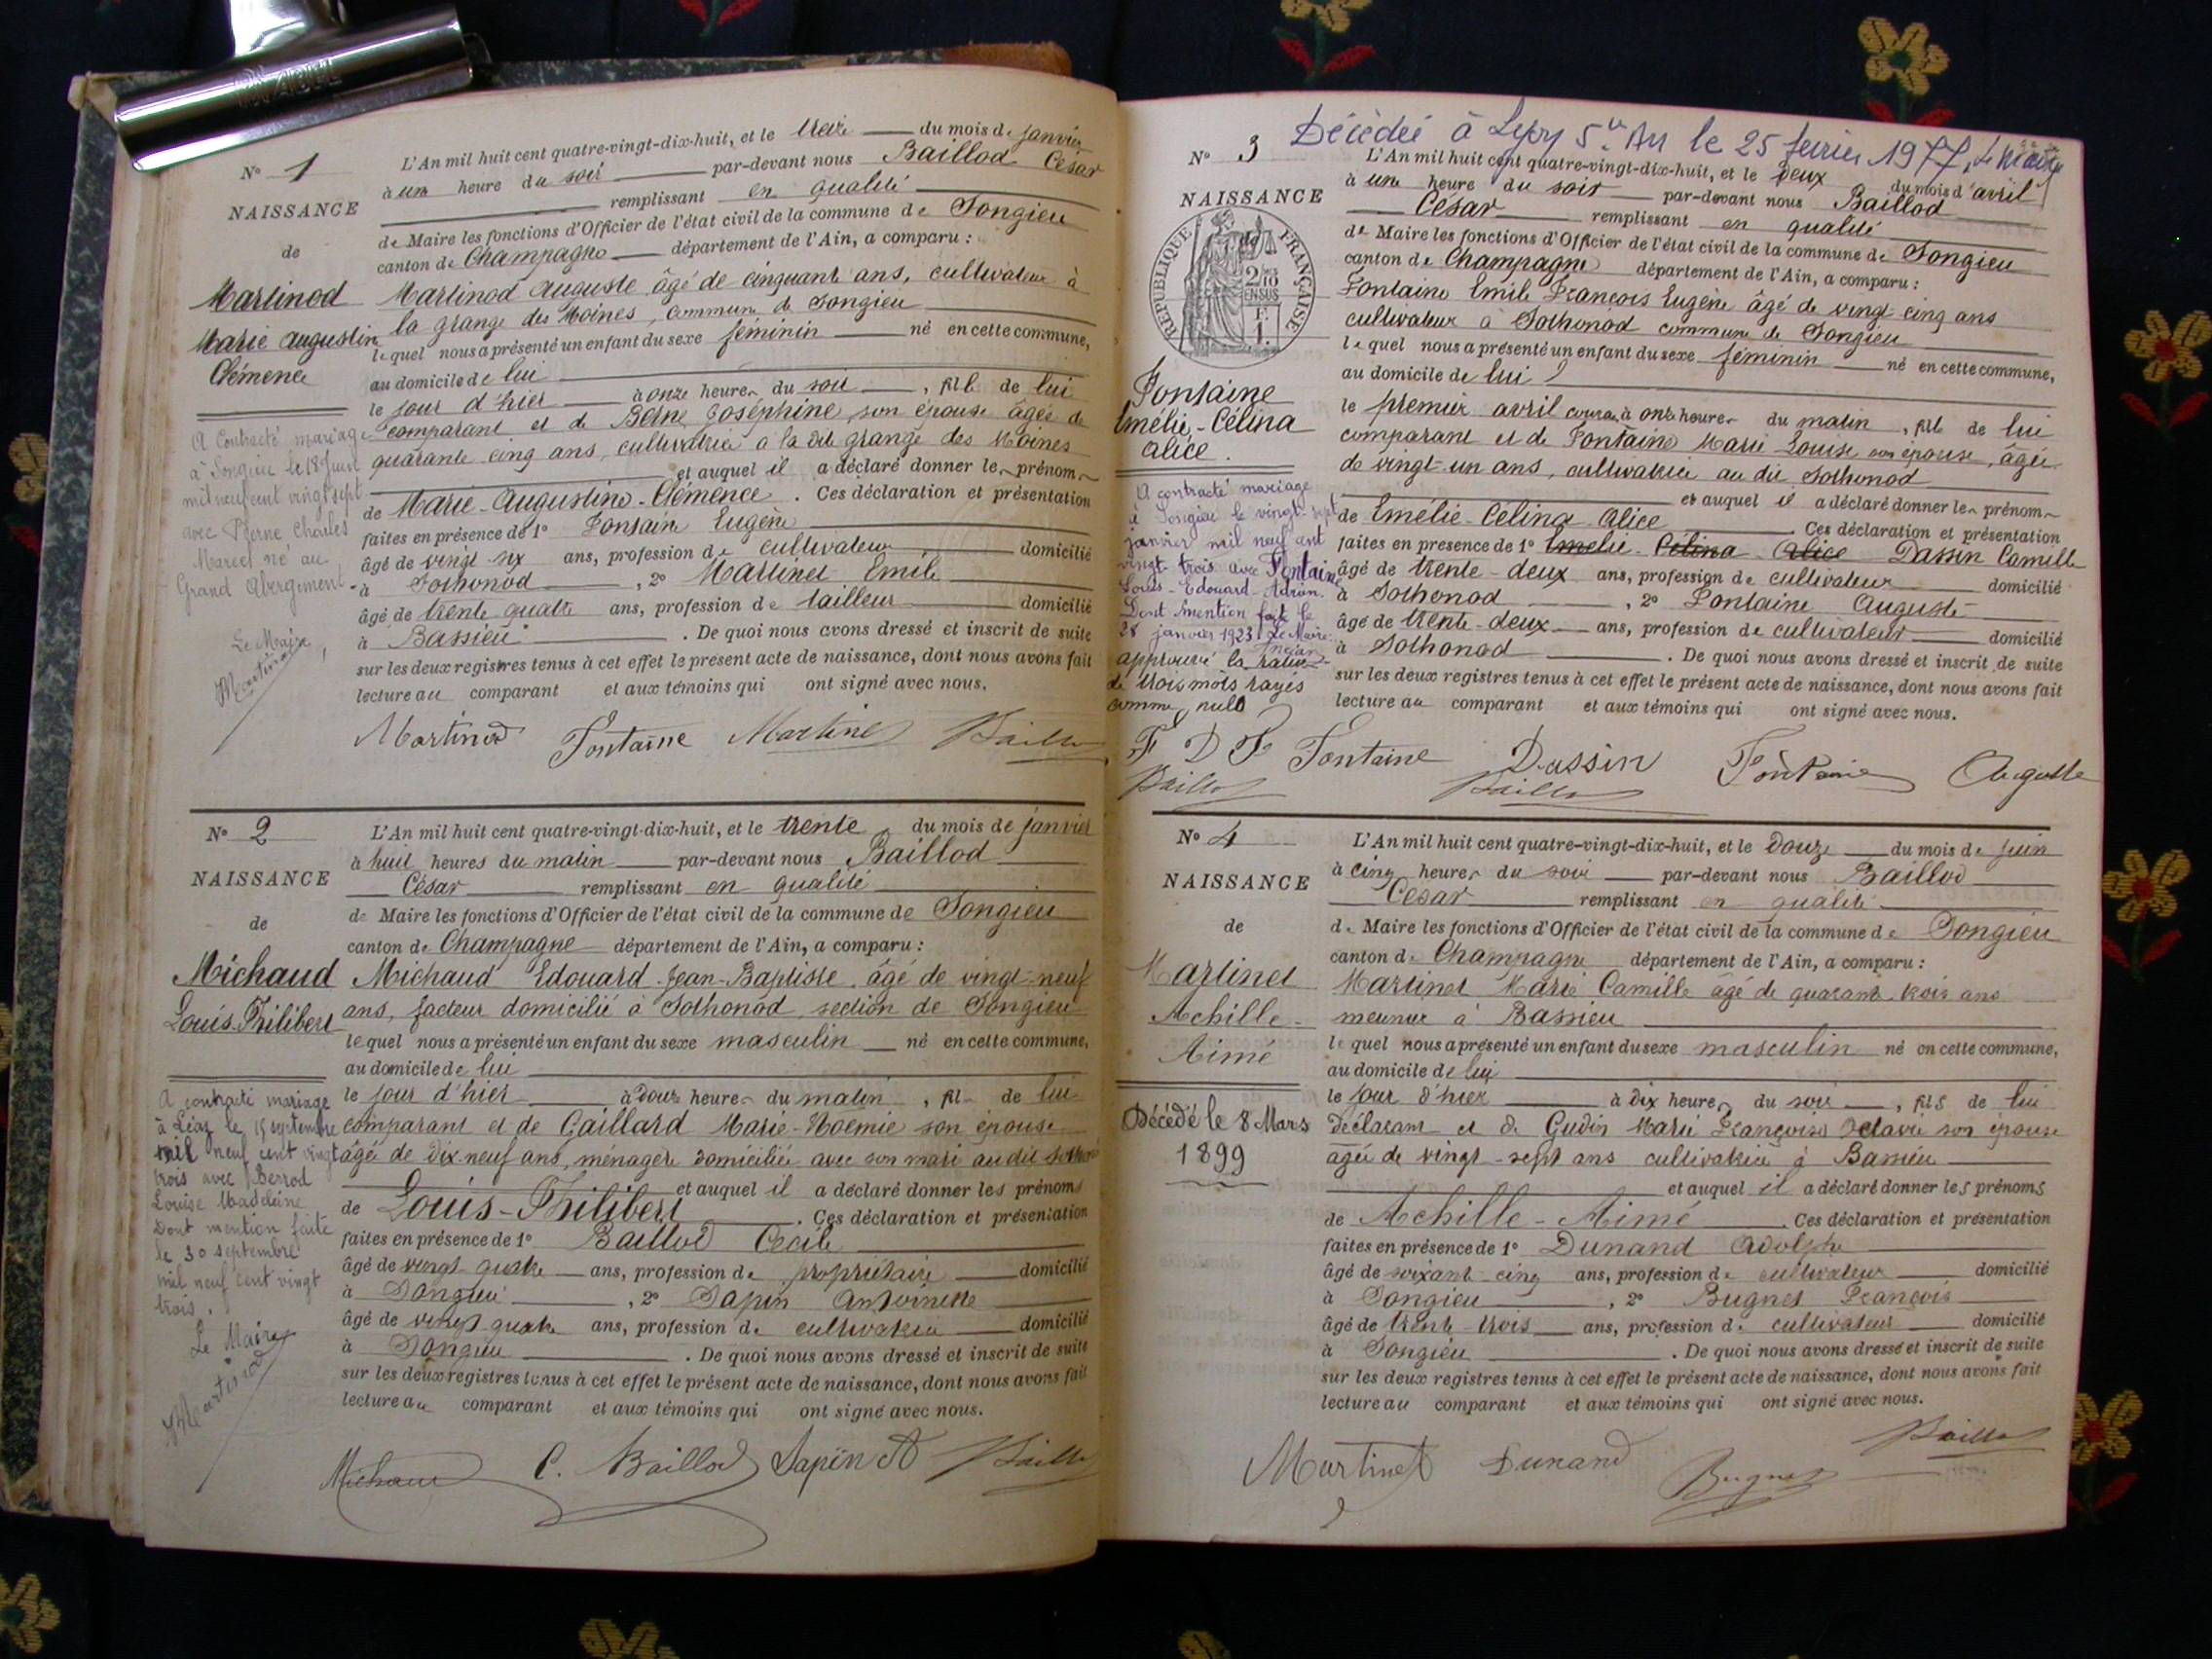 N° 1
NAISSANCE
de
Martinod
Marie Augustine
Clémence
A Contracté mariage
à Songieu le 18 Juin
mil neuf cent vingt sept
avec Pierne Charles
Marcel né au
Grand Abergement
Le Maire,
Martinod
L'An mil huit cent quatre-vingt-dix-huit, et le treize du mois de janvier
à une heure du soir par-devant nous Baillod César
remplissant en qualité
de Maire les fonctions d'Officier de l'état civil de la commune de Songieu
canton de Champagne département de l'Ain, a comparu :
Martinod Auguste âgé de cinquante ans, cultivateur à
la grange des Moines, commune de Songieu
lequel nous a présenté un enfant du sexe féminin né en cette commune,
au domicile de lui
le jour d'hier à onze heures du soir, fille de lui
comparant et de Berne Joséphine, son épouse âgée de
quarante cinq ans, cultivatrice à la dite grange des Moines
et auquel il a déclaré donner les prénoms
de Marie-Augustine-Clémence. Ces déclaration et présentation
faites en présence de 1° Fontaine Eugène
âgé de vingt six ans, profession de cultivateur domicilié
à Sothonod, 2° Martinet Emile
âgé de trente quatre ans, profession de tailleur domicilié
à Bassieu. De quoi nous avons dressé et inscrit de suite
sur les deux registres tenus à cet effet le présent acte de naissance, dont nous avons fait
lecture au comparant et aux témoins qui ont signé avec nous.
Martinod Fontaine Martinet Baillod
N° 2
NAISSANCE
de
Michaud
Louis-Philibert
A contracté mariage
à Léaz le 15 septembre
mil neuf cent vingt
trois avec Berrod
Louise Madeleine
Dont mention faite
le 30 septembre
mil neuf cent vingt
trois.
Le Maire
Martinod
L'An mil huit cent quatre-vingt-dix-huit, et le trente du mois de janvier
à huit heures du matin par-devant nous Baillod
César remplissant en qualité
de Maire les fonctions d'Officier de l'état civil de la commune de Songieu
canton de Champagne département de l'Ain, a comparu :
Michaud Edouard-Jean-Baptiste âgé de vingt-neuf
ans, facteur domicilié à Sothonod section de Songieu
lequel nous a présenté un enfant du sexe masculin né en cette commune,
au domicile de lui
le jour d'hier à douze heures du matin, fils de lui
comparant et de Gaillard Marie-Noémie son épouse
âgée de dix-neuf ans, ménagère domiciliée avec son mari au dit Sothonod
et auquel il a déclaré donner les prénoms
de Louis-Philibert. Ces déclaration et présentation
faites en présence de 1° Baillod Cécile
âgé de vingt quatre ans, profession de propriétaire domicilié
à Songieu, 2° Sapin Antoinette
âgé de vingt quatre ans, profession de cultivatrice domicilié
à Songieu. De quoi nous avons dressé et inscrit de suite
sur les deux registres tenus à cet effet le présent acte de naissance, dont nous avons fait
lecture au comparant et aux témoins qui ont signé avec nous.
Michaud C. Baillod Sapin A Baillod
Décédée à Lyon 5e Arr le 25 fevrier 1977, Le Maire
N° 3
NAISSANCE
de
RÉPUBLIQUE FRANÇAISE
2/10 EN SUS
Fontaine
Emélie-Célina
Alice.
A contracté mariage
à Songieu le vingt-sept
janvier mil neuf cent
vingt-trois avec Fontaine
Louis-Edouard-Adrien.
Dont mention faite le
28 janvier 1923 Le Maire
approuvé la rature
de trois mots rayés
comme nuls
F D F
Baillod
L'An mil huit cent quatre-vingt-dix-huit, et le deux du mois d'avril
à une heure du soir par-devant nous Baillod
César remplissant en qualité
de Maire les fonctions d'Officier de l'état civil de la commune de Songieu
canton de Champagne département de l'Ain, a comparu :
Fontaine Emile François Eugène âgé de vingt cinq ans
cultivateur à Sothonod commune de Songieu
lequel nous a présenté un enfant du sexe féminin né en cette commune,
au domicile de lui
le premier avril courant à onze heures du matin, fille de lui
comparant et de Fontaine Marie Louise son épouse, âgée
de vingt-un ans, cultivatrice au dit Sothonod
et auquel il a déclaré donner les prénoms
de Emélie-Célina-Alice Ces déclaration et présentation
faites en présence de 1° Emélie-Célina-Alice Dassin Camille
âgé de trente-deux ans, profession de cultivateur domicilié
à Sothonod, 2° Fontaine Auguste
âgé de trente-deux ans, profession de cultivateur domicilié
à Sothonod. De quoi nous avons dressé et inscrit de suite
sur les deux registres tenus à cet effet le présent acte de naissance, dont nous avons fait
lecture au comparant et aux témoins qui ont signé avec nous.
Fontaine Dassin Fontaine Auguste
Baillod
N° 4
NAISSANCE
de
Martinet
Achille-
Aimé
Décédé le 8 Mars
1899
L'An mil huit cent quatre-vingt-dix-huit, et le douze du mois de juin
à cinq heures du soir par-devant nous Baillod
César remplissant en qualité
de Maire les fonctions d'Officier de l'état civil de la commune de Songieu
canton de Champagne département de l'Ain, a comparu :
Martinet Marie Camille âgé de quarante trois ans
meunier à Bassieu
lequel nous a présenté un enfant du sexe masculin né en cette commune,
au domicile de lui
le jour d'hier à dix heures du soir, fils de lui
déclarant et de Gudin Marie Françoise Octavie son épouse
âgée de vingt-sept ans cultivatrice à Bassieu
et auquel il a déclaré donner les prénoms
de Achille-Aimé. Ces déclaration et présentation
faites en présence de 1° Dunand Adolphe
âgé de soixante-cinq ans, profession de cultivateur domicilié
à Songieu, 2° Bugnet François
âgé de trente-trois ans, profession de cultivateur domicilié
à Songieu. De quoi nous avons dressé et inscrit de suite
sur les deux registres tenus à cet effet le présent acte de naissance, dont nous avons fait
lecture au comparant et aux témoins qui ont signé avec nous.
Baillod
Martinet Dunand Bugnet